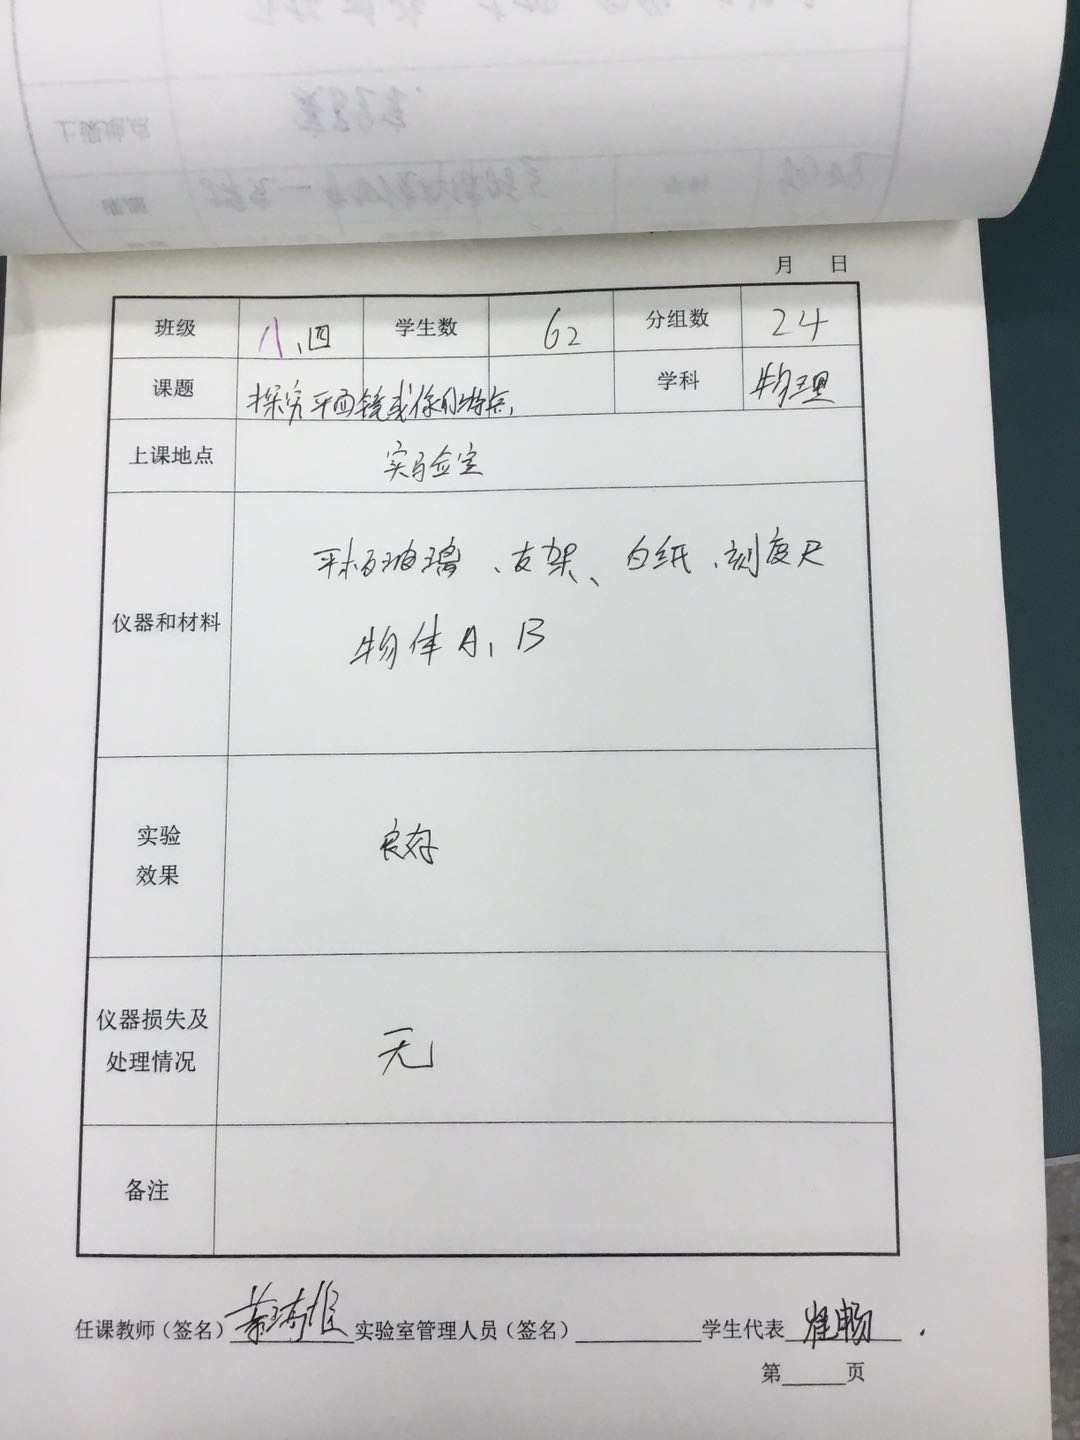 月 日
班级 八、四 学生数 62 分组数 24
课题 探究平面镜成像的特点 学科 物理
上课地点 实验室
仪器和材料 平板玻璃、支架、白纸、刻度尺
物体A、B
实验
效果 良好
仪器损失及
处理情况 无
备注
任课教师(签名) 实验室管理人员(签名) 学生代表 崔畅
第 页